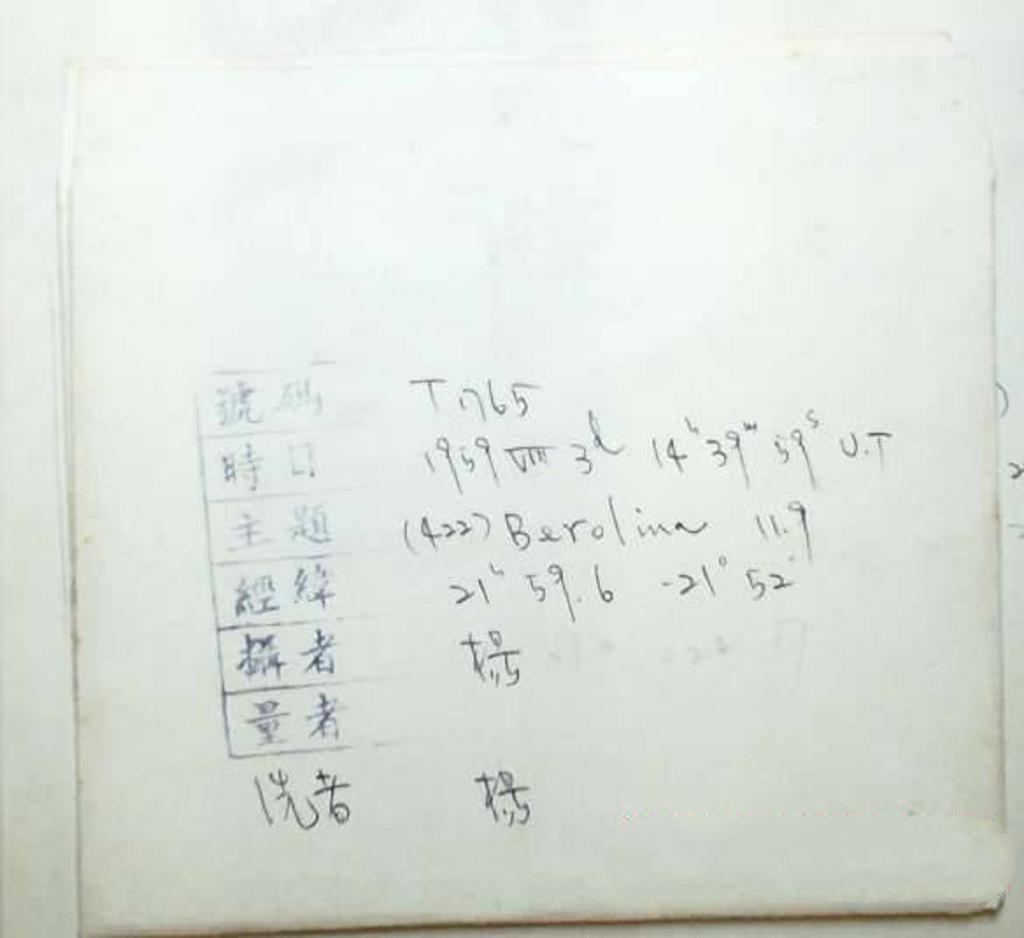 號碼 T 1765
時日 1959 VIII 3d 14h 39m 59s U.T
主題 (422) Berolina 11.9
經緯 21h 59.6 -21° 52'
攝者 楊
量者
洗者 楊